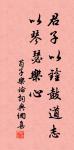 君子以鐘鼓道志
以琴瑟樂心
荀子樂論詞典網集